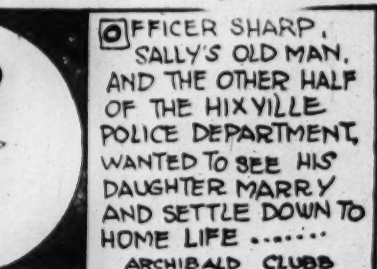 OFFICER SHARP,
SALLY'S OLD MAN,
AND THE OTHER HALF
OF THE HIXVILLE
POLICE DEPARTMENT,
WANTED TO SEE HIS
DAUGHTER MARRY
AND SETTLE DOWN TO
HOME LIFE ........
ARCHIBALD CLUBB